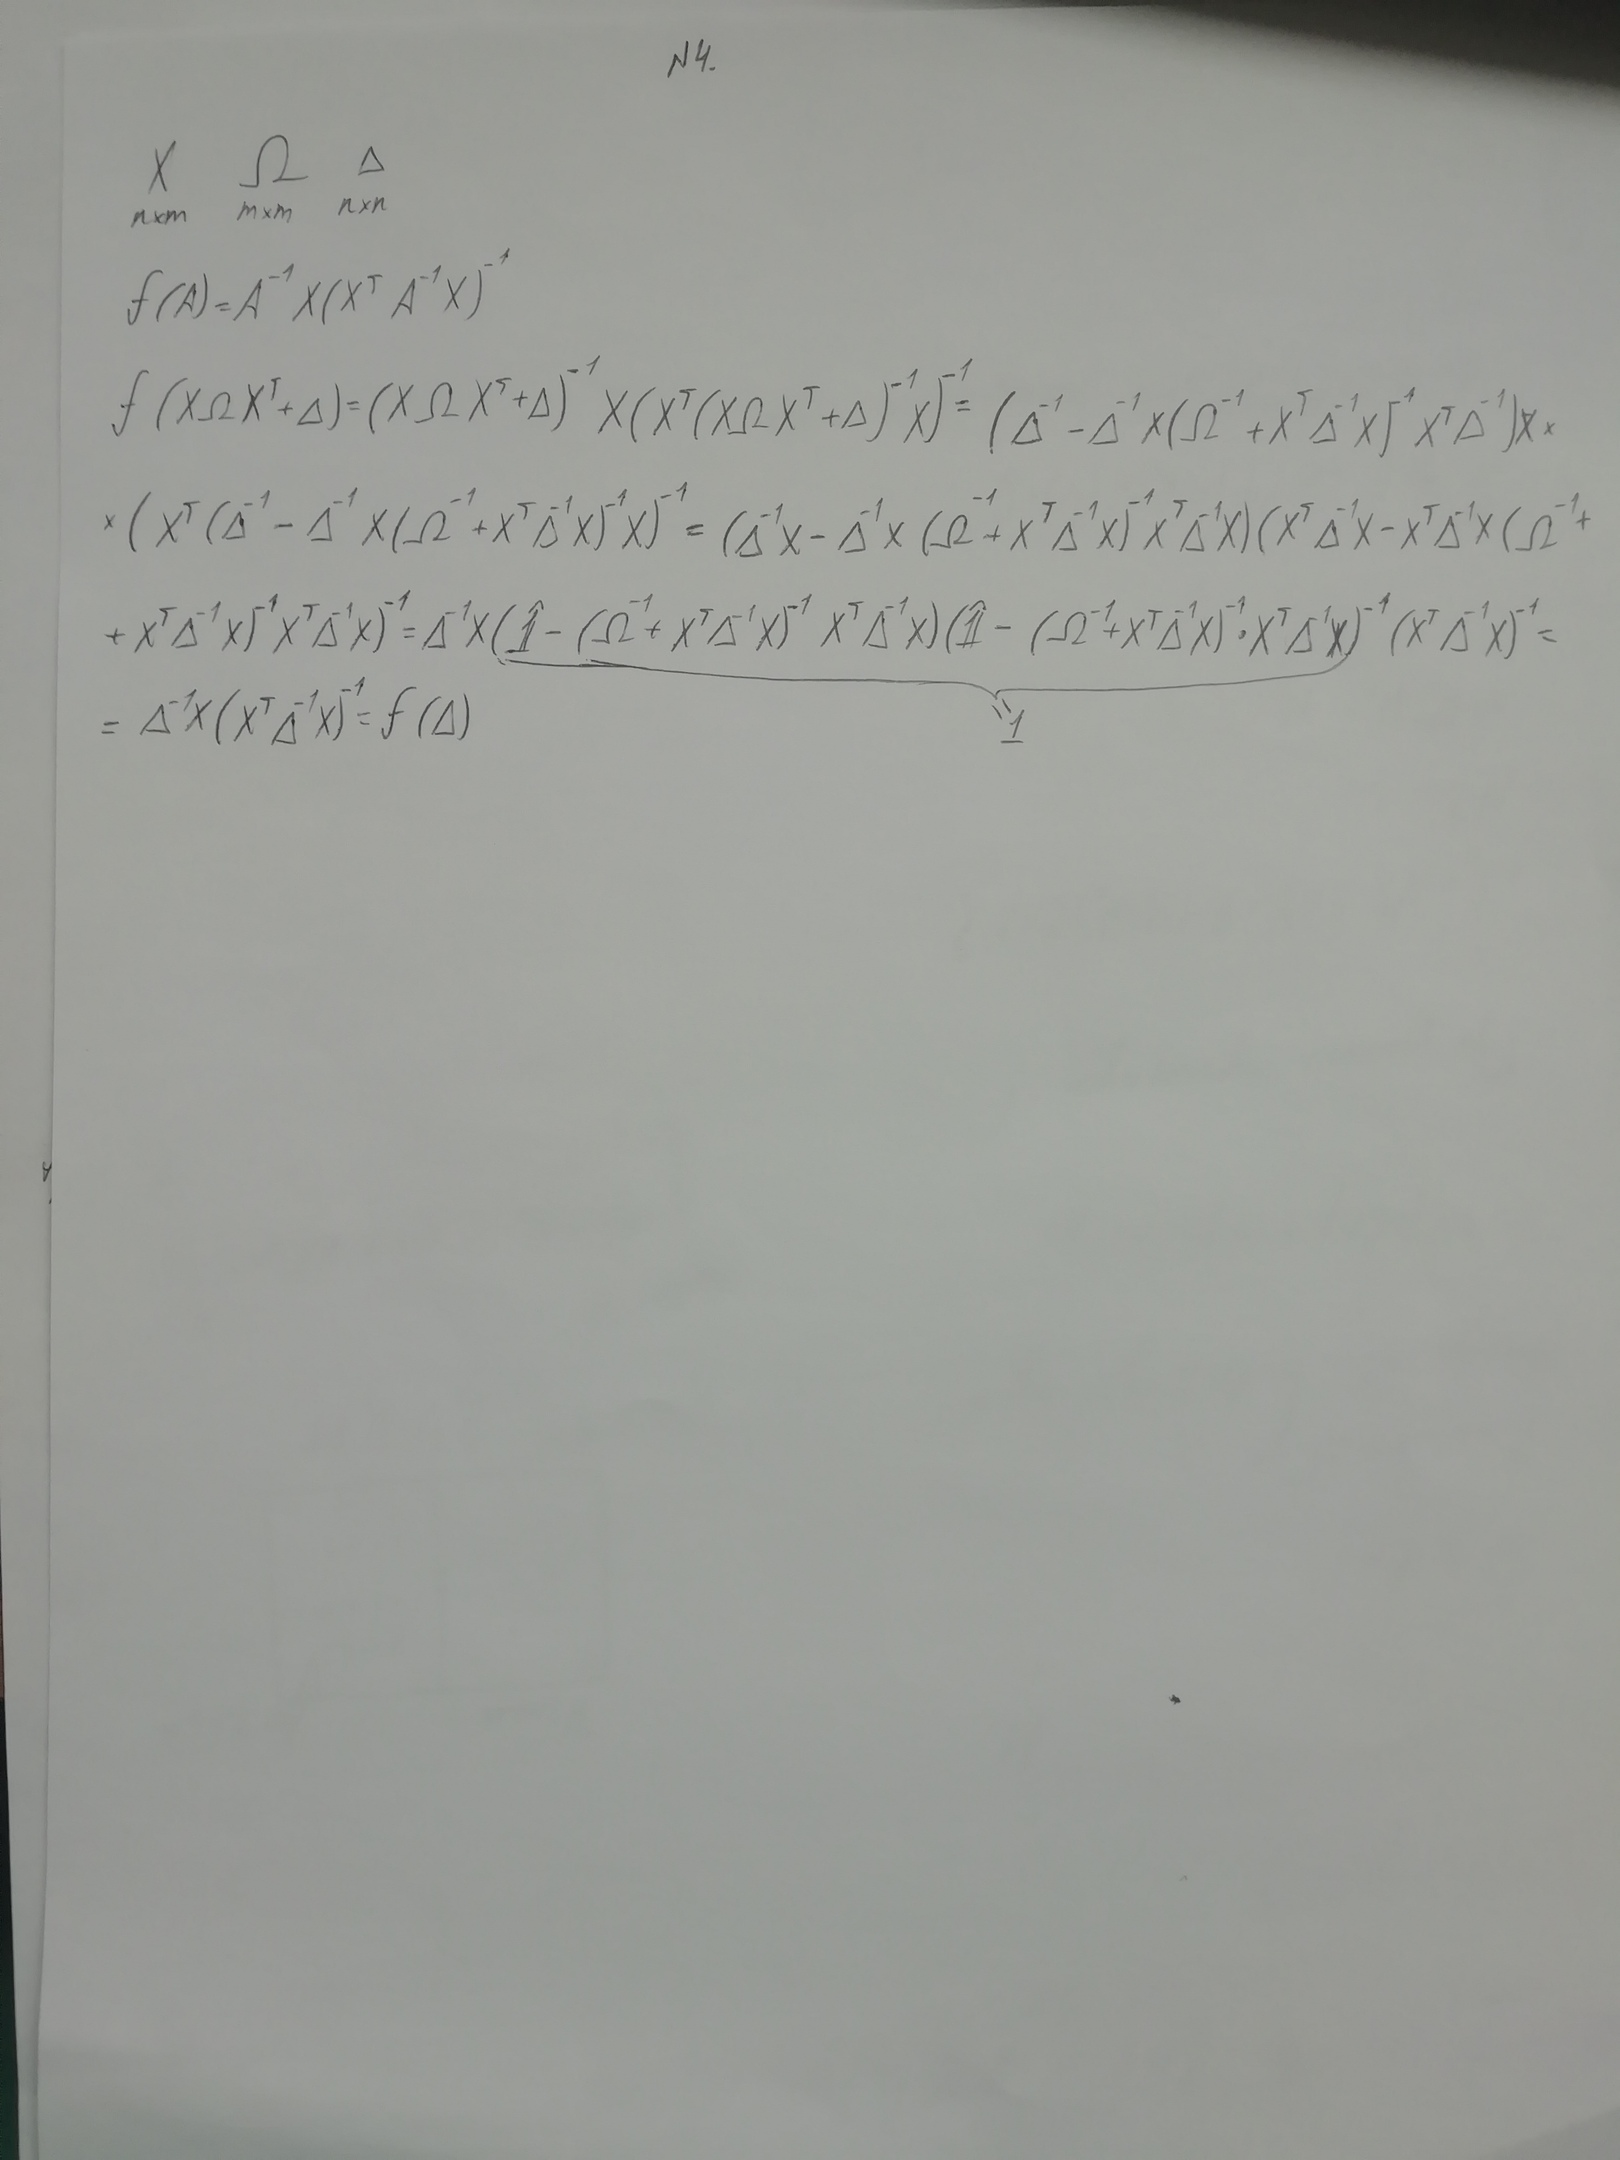 N4.
X Ω Δ
n×m m×m n×n
f(A)=A⁻¹X(Xᵀ A⁻¹X)⁻¹
f(XΩXᵀ+Δ)=(XΩXᵀ+Δ)⁻¹X(Xᵀ(XΩXᵀ+Δ)⁻¹X)⁻¹=(Δ⁻¹-Δ⁻¹X(Ω⁻¹+XᵀΔ⁻¹X)⁻¹XᵀΔ⁻¹)X×
×(Xᵀ(Δ⁻¹-Δ⁻¹X(Ω⁻¹+XᵀΔ⁻¹X)⁻¹X)⁻¹=(Δ⁻¹X-Δ⁻¹X(Ω⁻¹+XᵀΔ⁻¹X)⁻¹XᵀΔ⁻¹X)(XᵀΔ⁻¹X-XᵀΔ⁻¹X(Ω⁻¹+
+XᵀΔ⁻¹X)⁻¹XᵀΔ⁻¹X)⁻¹=Δ⁻¹X(1̂-(Ω⁻¹+XᵀΔ⁻¹X)⁻¹XᵀΔ⁻¹X)(1̂-(Ω⁻¹+XᵀΔ⁻¹X)⁻¹·XᵀΔ⁻¹X)⁻¹(XᵀΔ⁻¹X)⁻¹=
1
=Δ⁻¹X(XᵀΔ⁻¹X)⁻¹=f(Δ)